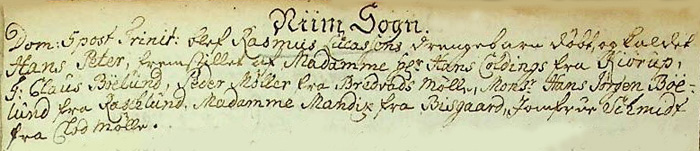 Niim Sogn
Dom: 5 post Trinit: blef Rasmus Lucassøns drengebarn døbt og kaldet
Hans Peter, fremstillet af Madamme Hans Coldings fra Kiørup,
Claus Boelund, Peder Møller fra Bredvads Mølle, Mons: Hans Jørgen Boe-
lund fra Rasklund, Madamme Mandix fra Bisgaard, Jomfrue Schmidt
fra Clod Mølle.